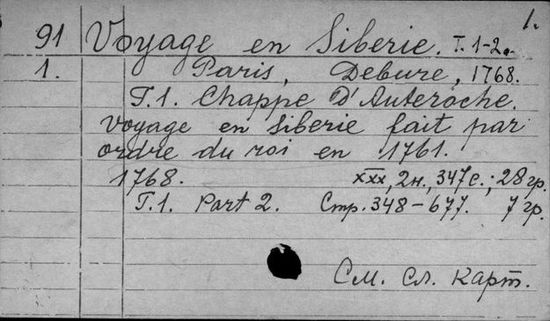 1.
91 Voyage en Siberie. T. 1-2.
1. Paris, Debure, 1768.
T.1. Chappe D'Auteroche.
Voyage en Siberie fait par
ordre du roi en 1761.
1768. XXX, 2н., 347с.; 28 гр.
T.1. Part 2. Стр. 348-677. 7 гр.
См. сл. карт.